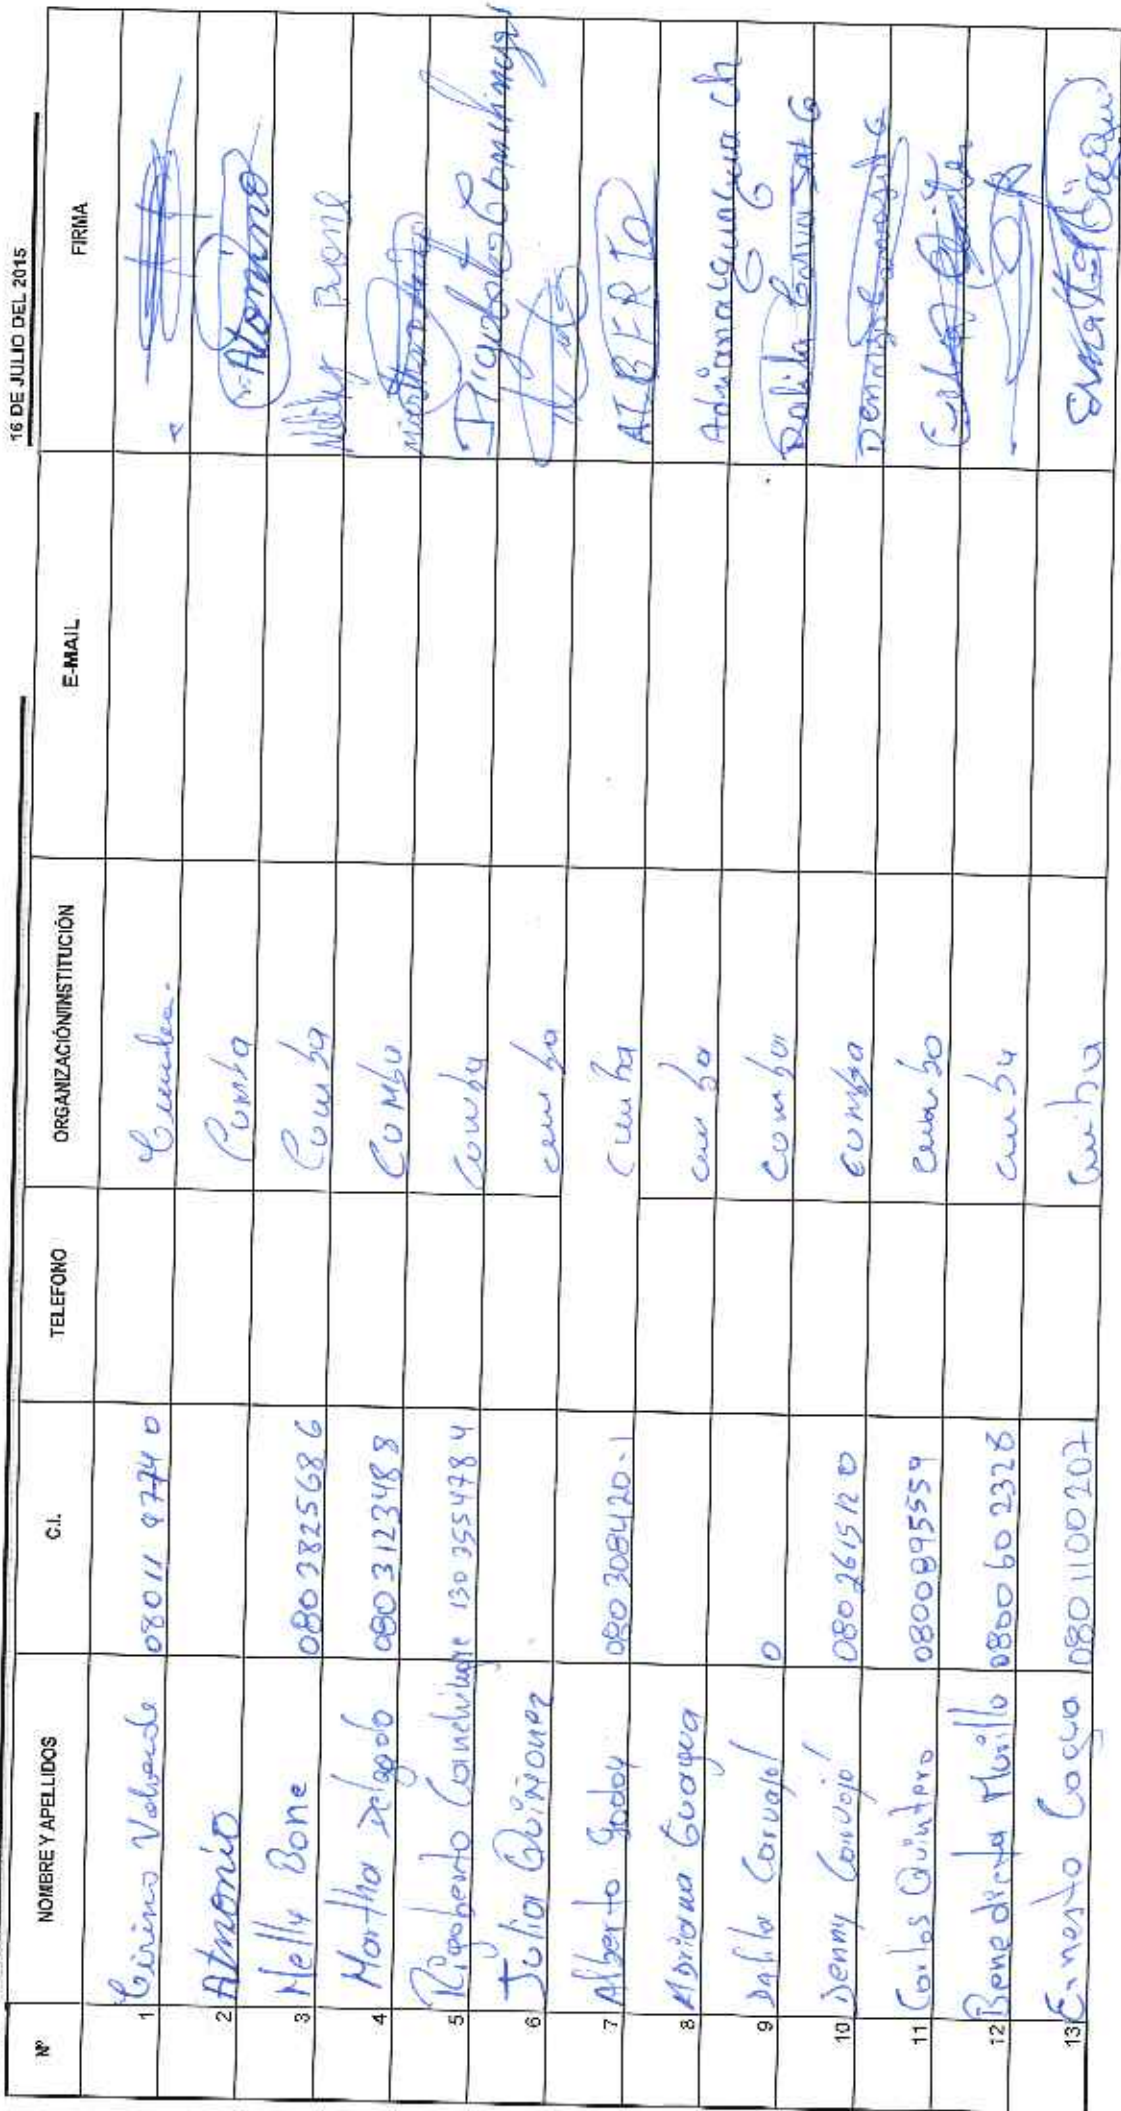 16 DE JULIO DEL 2015
Nº NOMBRE Y APELLIDOS C.I. TELEFONO ORGANIZACIÓN/INSTITUCIÓN E-MAIL FIRMA
1 Cirino Valverde
2 Atnonio Cumba Atonino
3 Nelly Bone 080382568 6 Cumba Nelly Bone
4 Martha Delgado 080312348 8 Cumba
5 Rigoberto 130355478 4 Cumba
6 Julia Quiñonez Cumba
7 Alberto Godoy 080308420-1 Cumba ALBERTO
8 Adriana Guagua Cumba Adriana Guagua ch
9 Dalila Carvajal 0 Cumba Dalila
10 Denny Carvajal 080261512 0 Cumba
11 Carlos Quintero 0800895554 Cumba
12 Benedicta Murillo 0800602328 Cumba
13 Ernesto 0801100207 Cumba